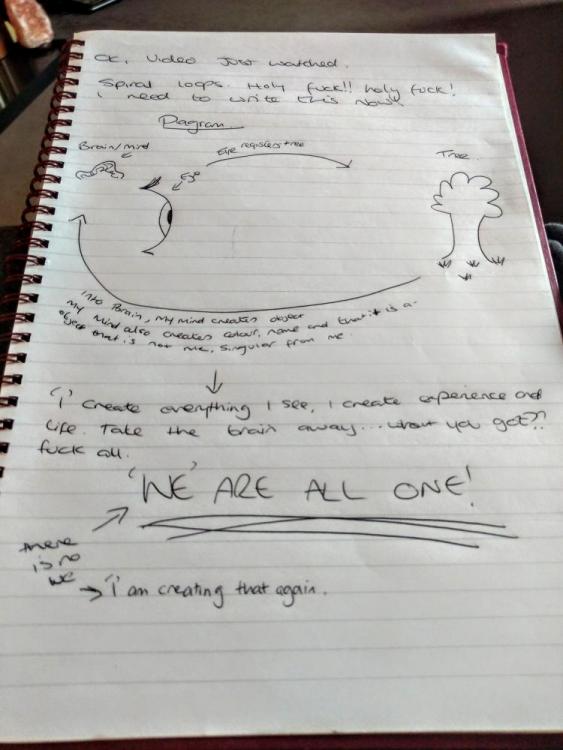 OK, Video Just watched.
Spiral loops. Holy fuck!! holy fuck!
i need to write this Now!
Diagram
Brain/mind
Eye
Eye registers tree
Tree
into Brain, my mind creates object
my mind also creates colour, name and that it is a
object that is not me, singular from me
'I' create everything I see, I create experience and
Life. Take the brain away... what you got??
fuck all.
'WE' ARE ALL ONE!
there
is no
we
'I' am creating that again.